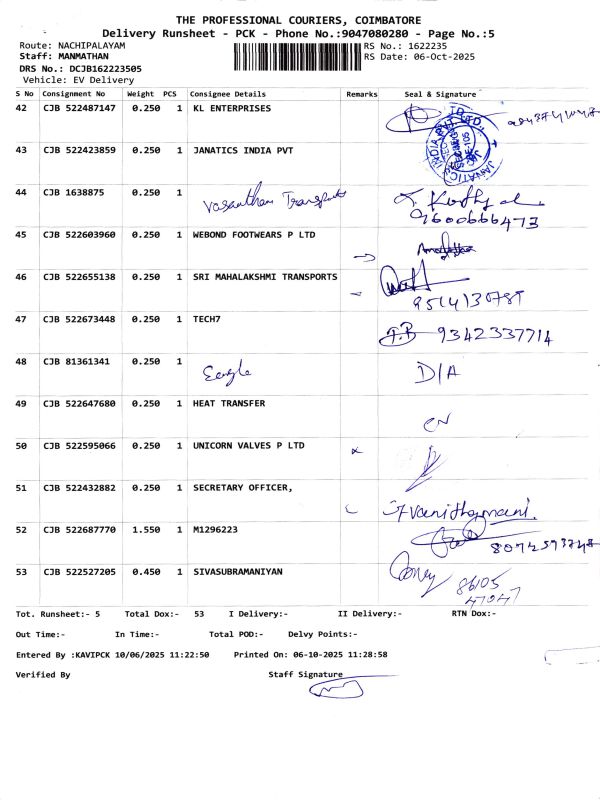 THE PROFESSIONAL COURIERS, COIMBATORE
Delivery Runsheet - PCK - Phone No.:9047080280 - Page No.:5
Route: NACHIPALAYAM RS No.: 1622235
Staff: MANMATHAN RS Date: 06-Oct-2025
DRS No.: DCJB162223505
Vehicle: EV Delivery
S No Consignment No Weight PCS Consignee Details Remarks Seal & Signature
42 CJB 522487147 0.250 1 KL ENTERPRISES
43 CJB 522423859 0.250 1 JANATICS INDIA PVT
44 CJB 1638875 0.250 1 Vasantham Transports
9600666473
45 CJB 522603960 0.250 1 WEBOND FOOTWEARS P LTD
46 CJB 522655138 0.250 1 SRI MAHALAKSHMI TRANSPORTS
47 CJB 522673448 0.250 1 TECH7 9342337714
48 CJB 81361341 0.250 1 D/A
49 CJB 522647680 0.250 1 HEAT TRANSFER
50 CJB 522595066 0.250 1 UNICORN VALVES P LTD
51 CJB 522432882 0.250 1 SECRETARY OFFICER,
52 CJB 522687770 1.550 1 M1296223
53 CJB 522527205 0.450 1 SIVASUBRAMANIYAN
86105
47047
Tot. Runsheet:- 5 Total Dox:- 53 I Delivery:- II Delivery:- RTN Dox:-
Out Time:- In Time:- Total POD:- Delvy Points:-
Entered By :KAVIPCK 10/06/2025 11:22:50 Printed On: 06-10-2025 11:28:58
Verified By Staff Signature